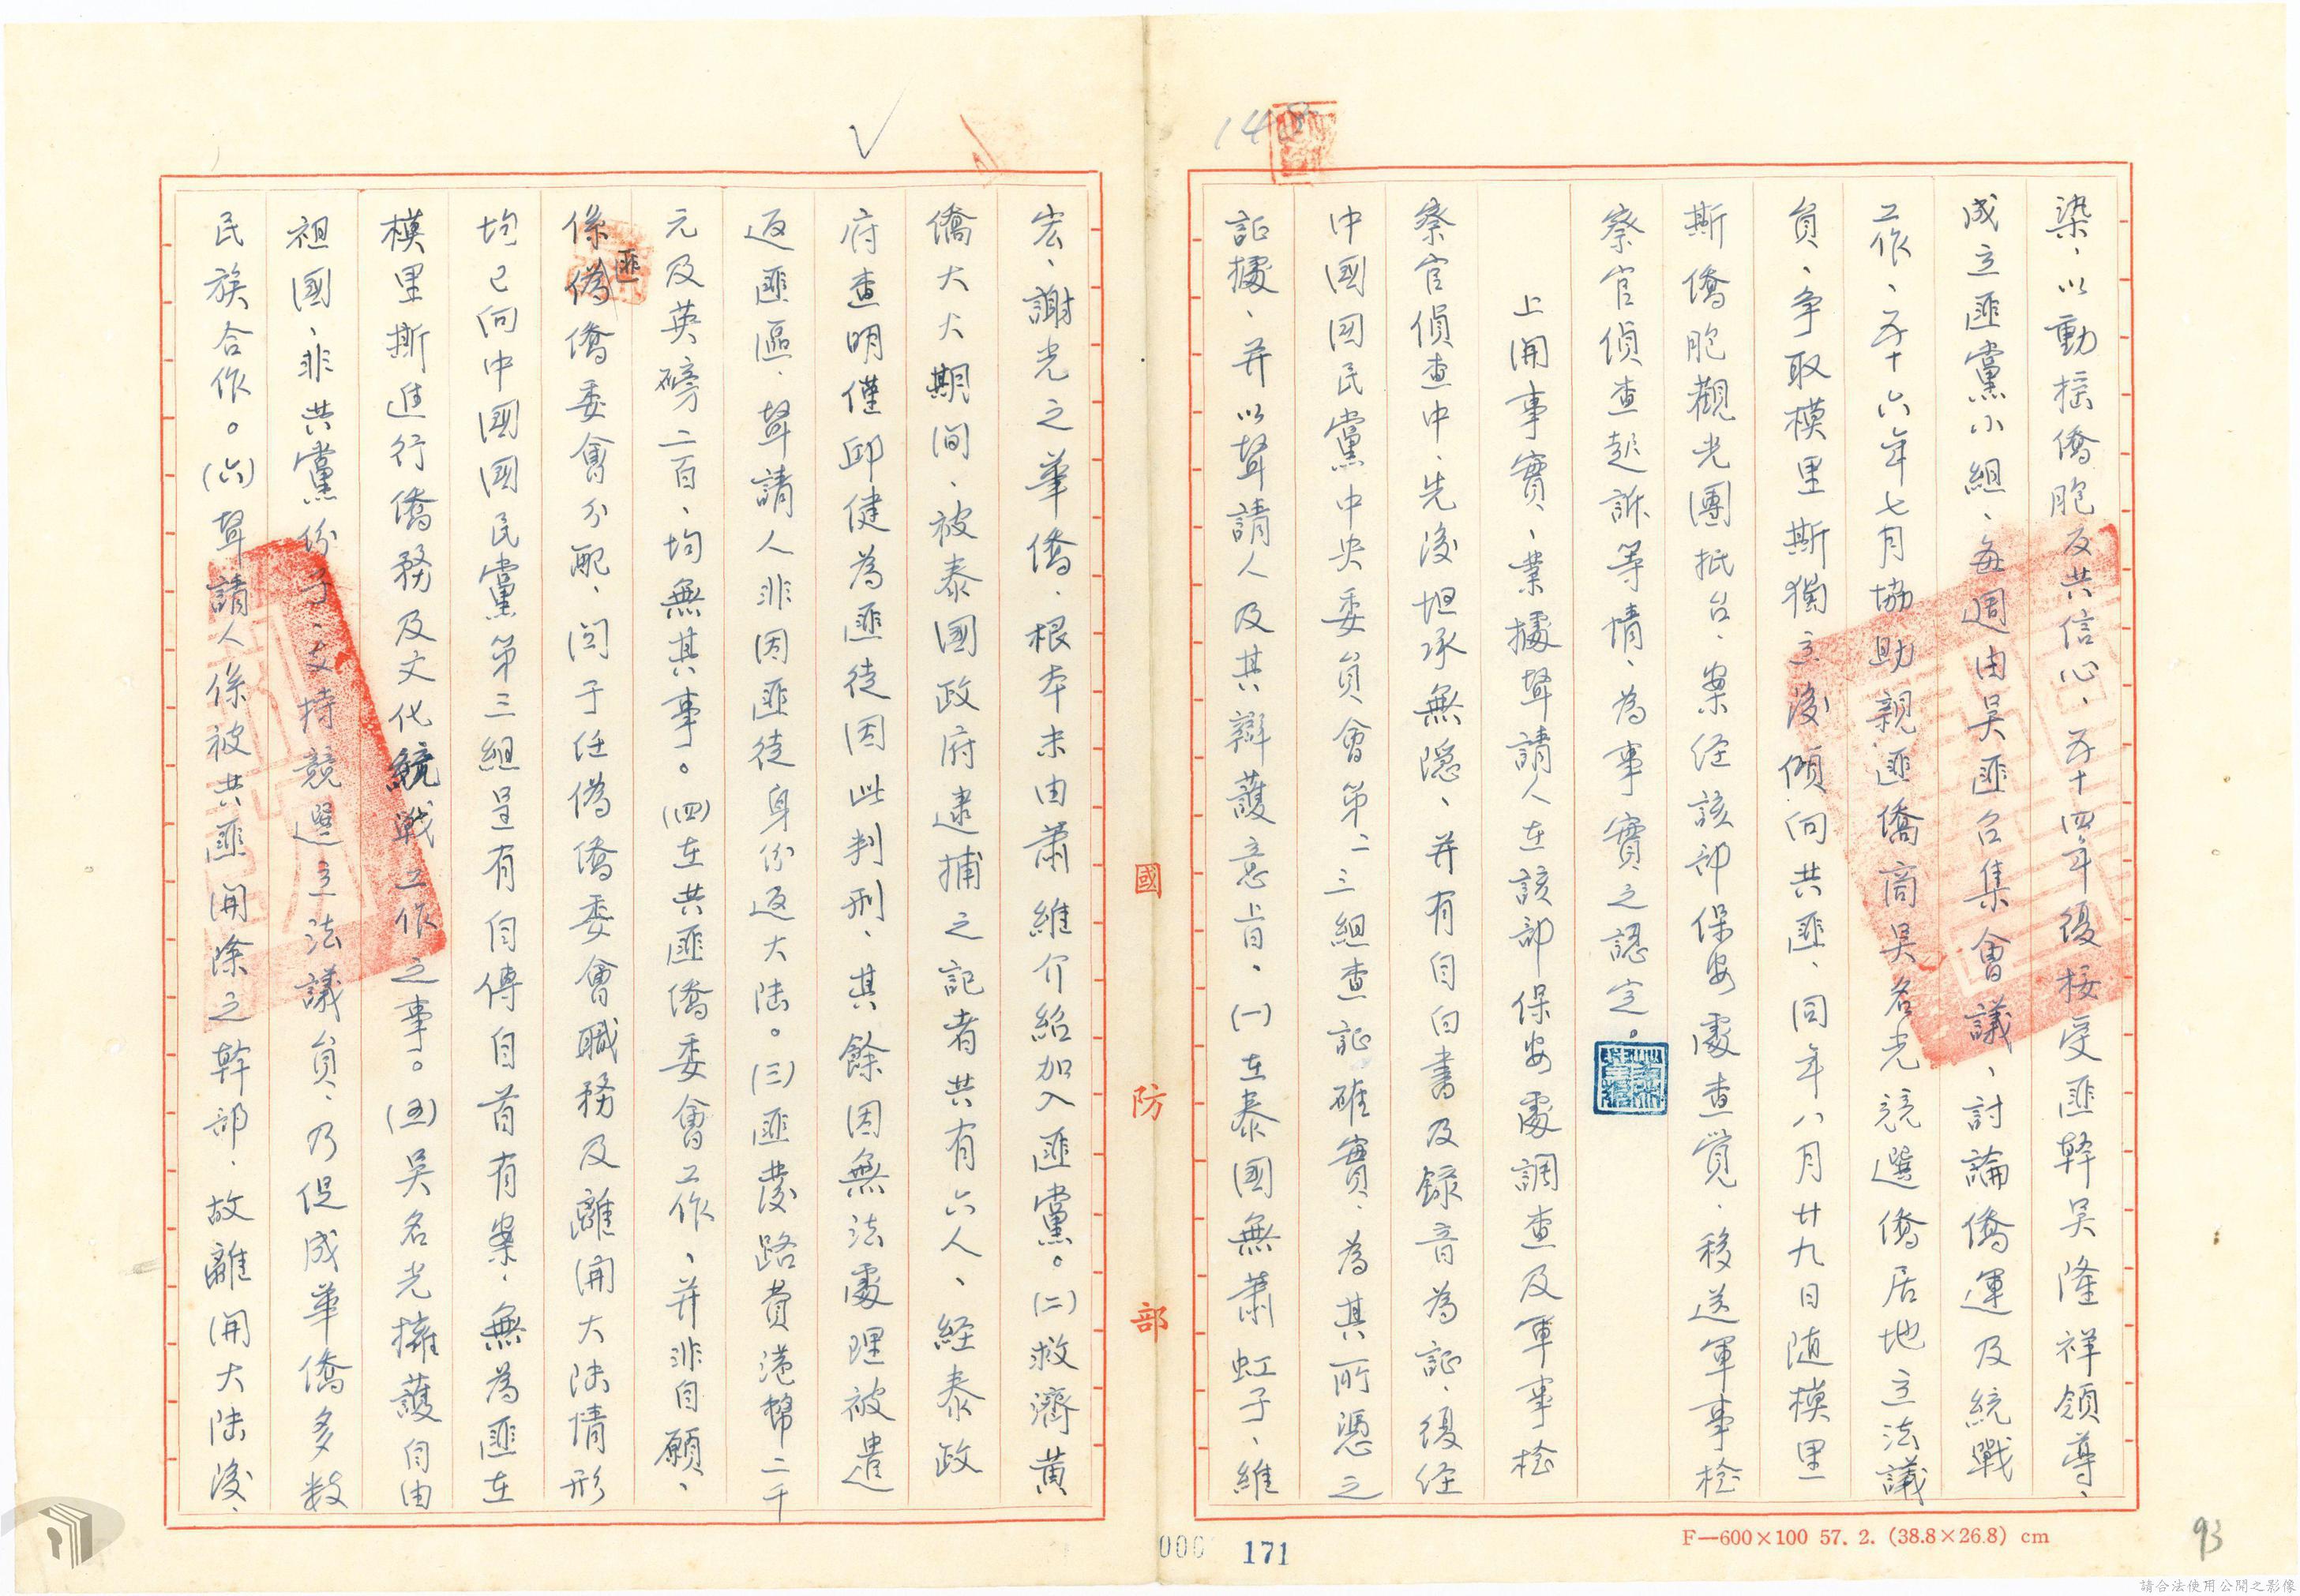 染、以動搖僑胞反共信心、五十四年復接受匪幹吳隆祥領導、
成立匪黨小組、每週由吳匪召集會議、討論僑運及統戰
工作、五十六年七月協助親匪僑商吳名光競選僑居地立法議
員、爭取模里斯獨立後傾向共匪、同年八月廿九日随模里
斯僑胞觀光團抵台、案经該部保安處查覺、移送軍事检
察官偵查起訴等情、為事實之認定。
上開事實、業據聲請人在該部保安處調查及軍事检
察官偵查中、先後坦承無隱、并有自白書及錄音為証、復经
中國国民黨中央委員會第二三組查証確實、為其所憑之
証據、并以聲請人及其辯護意旨、(一)在泰國無蕭虹子、維
宏、謝光之華僑、根本未由蕭維介紹加入匪黨。(二)救濟黄
僑大大期间、被泰國政府逮捕之記者共有六人、経泰政
府查明僅邱健為匪徒因此判刑、其餘因無法處理被遣
返匪區、聲請人非因匪徒身份返大陆。(三)匪發路費港幣二千
元及英磅二百、均無其事。(四)在共匪僑委會工作、并非自願、
係匪偽僑委會分配、関于任偽僑委會職務及離開大陆情形
均已向中國國民黨第三組呈有自傳自首有案、無為匪在
模里斯進行僑務及文化統戰工作之事。(五)吳名光擁護自由
祖國、非共黨份子、支持競選立法議員、乃促成華僑多数
民族合作。(六)聲請人係被共匪開除之幹部、故離開大陆後、
國防部
14
000 171
F—600×100 57. 2. (38.8×26.8) cm
93
請合法使用公開之影像